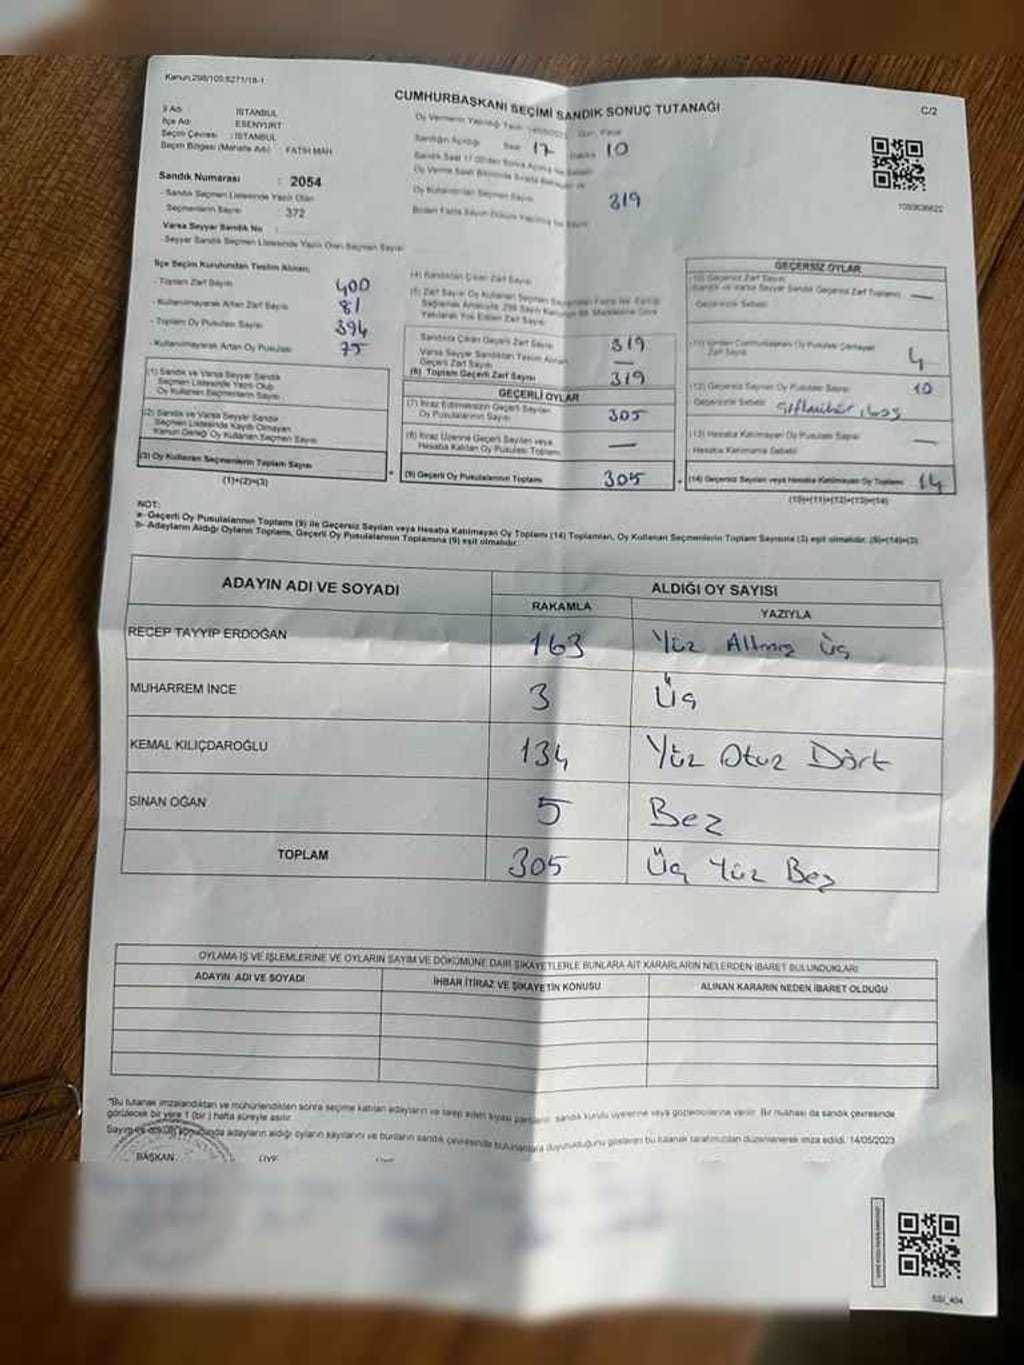 Kanun:298/105;6271/18-1
CUMHURBAŞKANI SEÇİMİ SANDIK SONUÇ TUTANAĞI
C/2
İl Adı : İSTANBUL
İlçe Adı : ESENYURT
Seçim Çevresi : İSTANBUL
Seçim Bölgesi (Mahalle Adı) : FATİH MAH
Sandık Numarası : 2054
- Sandık Seçmen Listesinde Yazılı Olan
Seçmenlerin Sayısı : 372
Varsa Seyyar Sandık No :
- Seyyar Sandık Seçmen Listesinde Yazılı Olan Seçmen Sayısı
Sandığın Açıldığı Saat 17 Dakika 10
Oy Kullanan Seçmen Sayısı 319
İlçe Seçim Kurulundan Teslim Alınan;
- Toplam Zarf Sayısı 400
- Kullanılmayarak Artan Zarf Sayısı 81
- Toplam Oy Pusulası Sayısı 394
- Kullanılmayarak Artan Oy Pusulası 75
(1) Sandık ve Varsa Seyyar Sandık
Seçmen Listesinde Yazılı Olup
Oy Kullanan Seçmenlerin Sayısı
(2) Sandık ve Varsa Seyyar Sandık
Seçmen Listesinde Kayıtlı Olmayan
Kanun Gereği Oy Kullanan Seçmen Sayısı
(3) Oy Kullanan Seçmenlerin Toplam Sayısı
(1)+(2)=(3)
(4) Sandıktan Çıkan Zarf Sayısı
Sandıkta Çıkan Geçerli Zarf Sayısı 319
Varsa Seyyar Sandıktan Teslim Alınan
Geçerli Zarf Sayısı —
(6) Toplam Geçerli Zarf Sayısı 319
GEÇERLİ OYLAR
(7) İtiraz Edilmeksizin Geçerli Sayılan
Oy Pusulalarının Sayısı 305
(8) İtiraz Üzerine Geçerli Sayılan veya
Hesaba Katılan Oy Pusulası Toplamı —
(9) Geçerli Oy Pusulalarının Toplamı 305
GEÇERSİZ OYLAR
Zarf Sayısı 4
(12) Geçersiz Sayılan Oy Pusulası Sayısı 10
(13) Hesaba Katılmayan Oy Pusulası Sayısı —
Hesaba Katılmama Sebebi
(14) Geçersiz Sayılan veya Hesaba Katılmayan Oy Toplamı 14
(10)+(11)+(12)+(13)=(14)
NOT:
a- Geçerli Oy Pusulalarının Toplamı (9) ile Geçersiz Sayılan veya Hesaba Katılmayan Oy Toplamı (14) Toplamları, Oy Kullanan Seçmenlerin Toplam Sayısına (3) eşit olmalıdır. (9)+(14)=(3)
b- Adayların Aldığı Oyların Toplamı, Geçerli Oy Pusulalarının Toplamına (9) eşit olmalıdır.
ADAYIN ADI VE SOYADI
ALDIĞI OY SAYISI
RAKAMLA YAZIYLA
RECEP TAYYİP ERDOĞAN 163 Yüz Altmış Üç
MUHARREM İNCE 3 Üç
KEMAL KILIÇDAROĞLU 134 Yüz Otuz Dört
SİNAN OĞAN 5 Beş
TOPLAM 305 Üç Yüz Beş
OYLAMA İŞ VE İŞLEMLERİNE VE OYLARIN SAYIM VE DÖKÜMÜNE DAİR ŞİKAYETLERLE BUNLARA AİT KARARLARIN NELERDEN İBARET BULUNDUKLARI
ADAYIN ADI VE SOYADI
İHBAR İTİRAZ VE ŞİKAYETİN KONUSU
ALINAN KARARIN NEDEN İBARET OLDUĞU
*Bu tutanak imzalandıktan ve mühürlendikten sonra seçime katılan adayların ve talep eden siyasi partilerin sandık kurulu üyelerine veya gözlemcilerine verilir. Bir nüshası da sandık çevresinde
görülecek bir yere 1 (bir) hafta süreyle asılır.
adayların aldığı oyların sayılarını ve bunların sandık çevresinde bulunanlara duyurulduğunu gösteren bu tutanak tarafımızdan düzenlenerek imza edildi. 14/05/2023
BAŞKAN